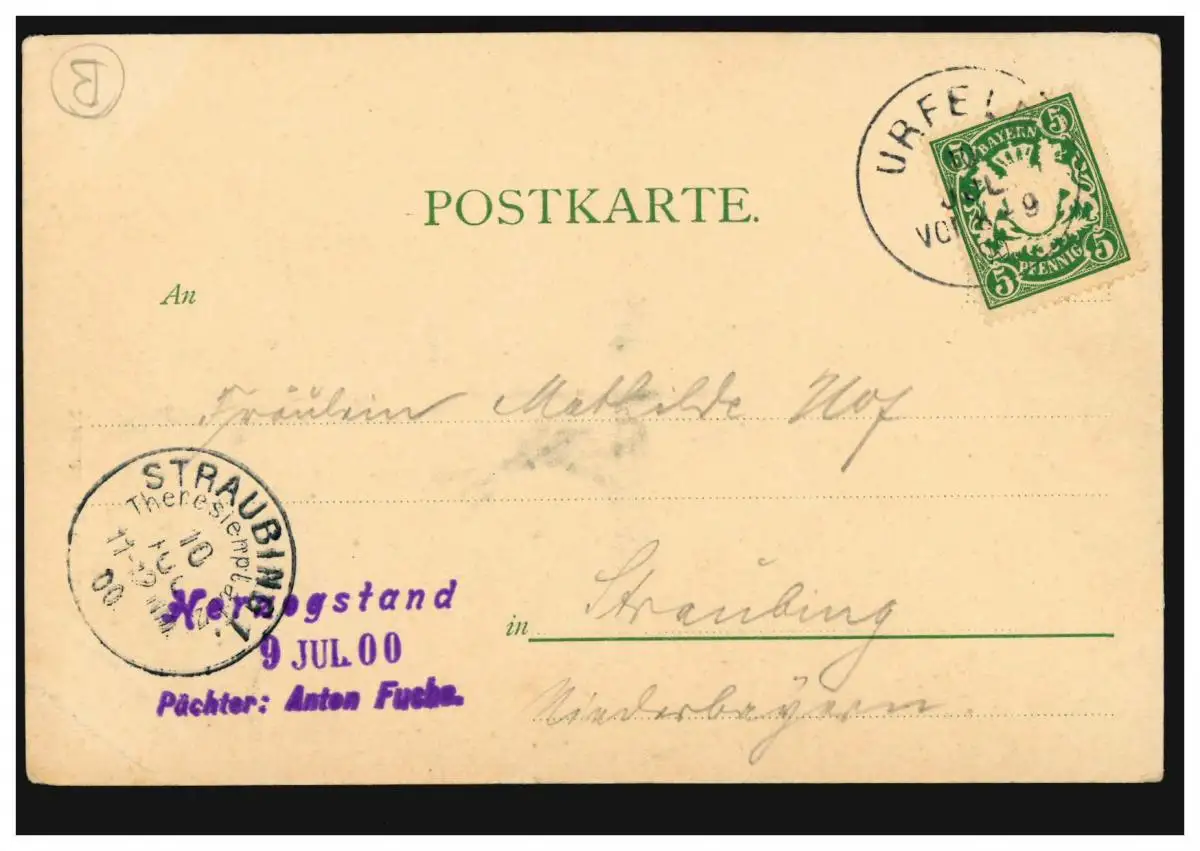 B
URFEL
10
JUL
VOR 8-9
00
5
BAYERN
5
PFENNIG
5
POSTKARTE.
An
Fräulein Mathilde Hof
STRAUBING 1.
Theresienplatz
10
JUL
11-12
00
Herzogstand
9 JUL. 00
Pächter: Anton Fuchs.
in Straubing
Niederbayern.